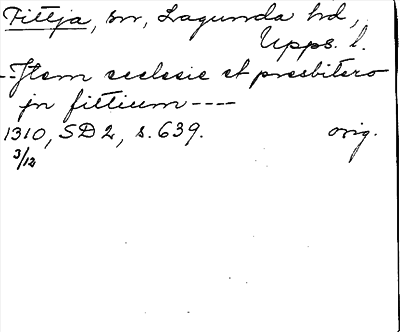 Fittja, sn, Lagunda hd,
Upps. l.
--Jtem ecclesie et presbitero
jn fittium ----
1310, SD 2, s. 639. orig.
3/12